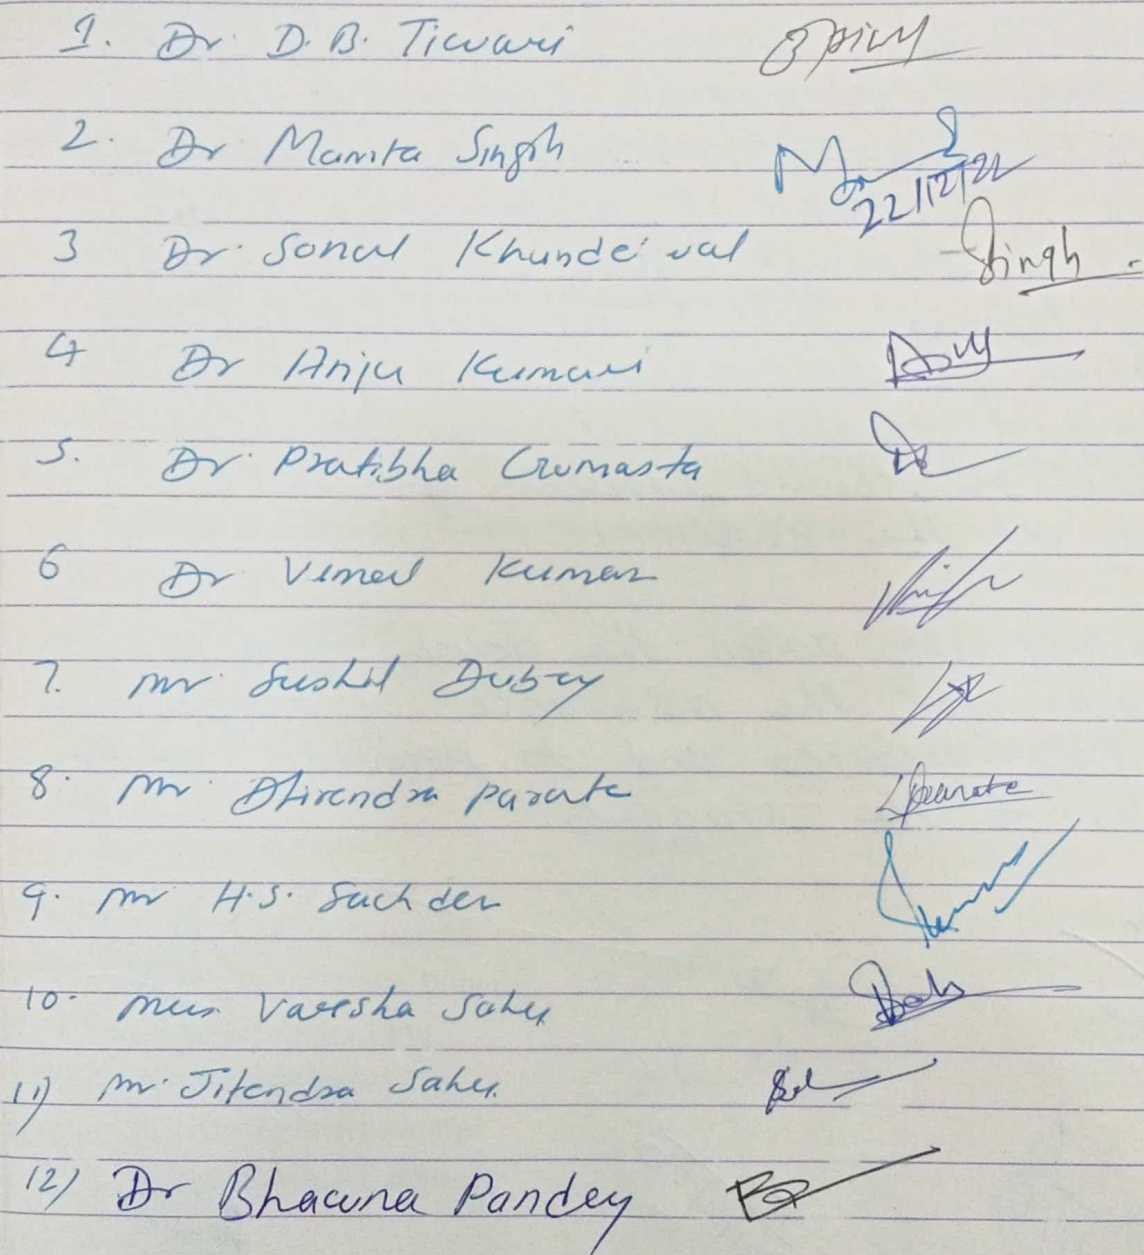 1. Dr. D. B. Tiwari
2. Dr Mamta Singh
22/12/22
3 Dr. Sonal Khandelwal Singh
4 Dr Anju Kumari
5. Dr. Pratibha Gumasta
6 Dr Vimal Kumar
7. Mr. Sushil Dubey
8. Mr Dhirendra Parate Parate
9. Mr H.S. Sachdev
10. Mrs. Varsha Sahu
11) Mr. Jitendra Sahu
12) Dr Bhawna Pandey